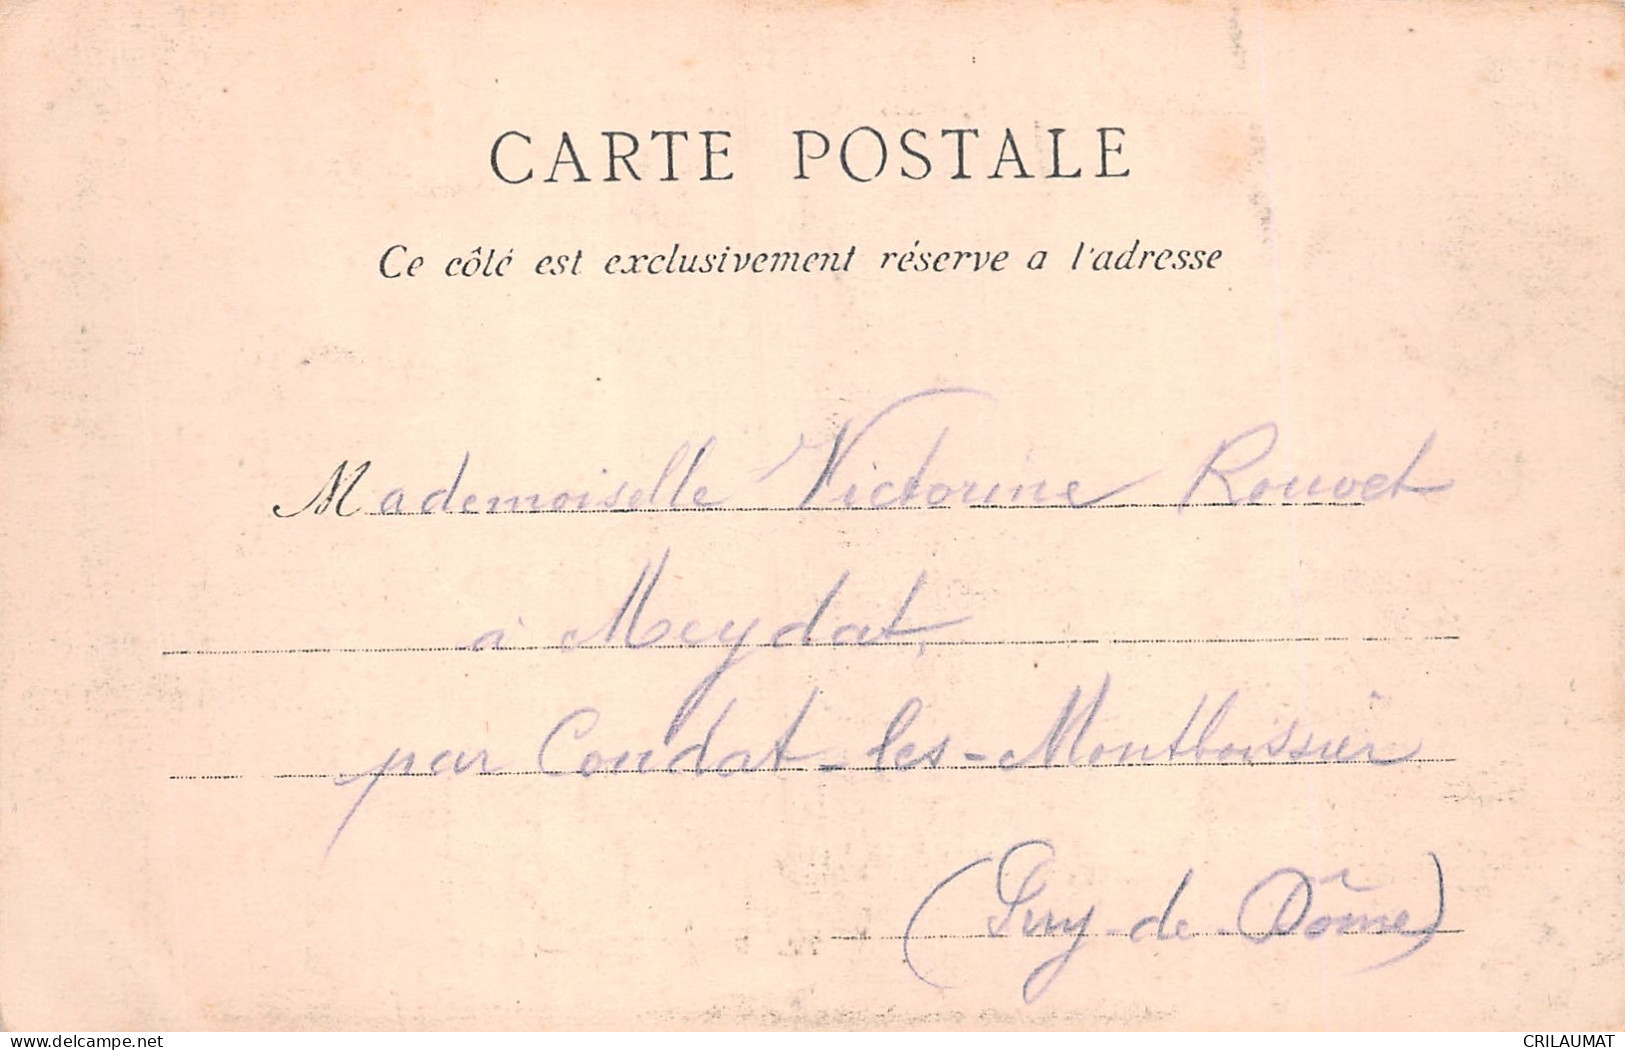 CARTE POSTALE
Ce côté est exclusivement réserve a l'adresse
Mademoiselle Victorine Rouvet
à Meydat,
par Condat-les-Montboissier
(Puy-de-Dôme)
delcampe.net
CRILAUMAT